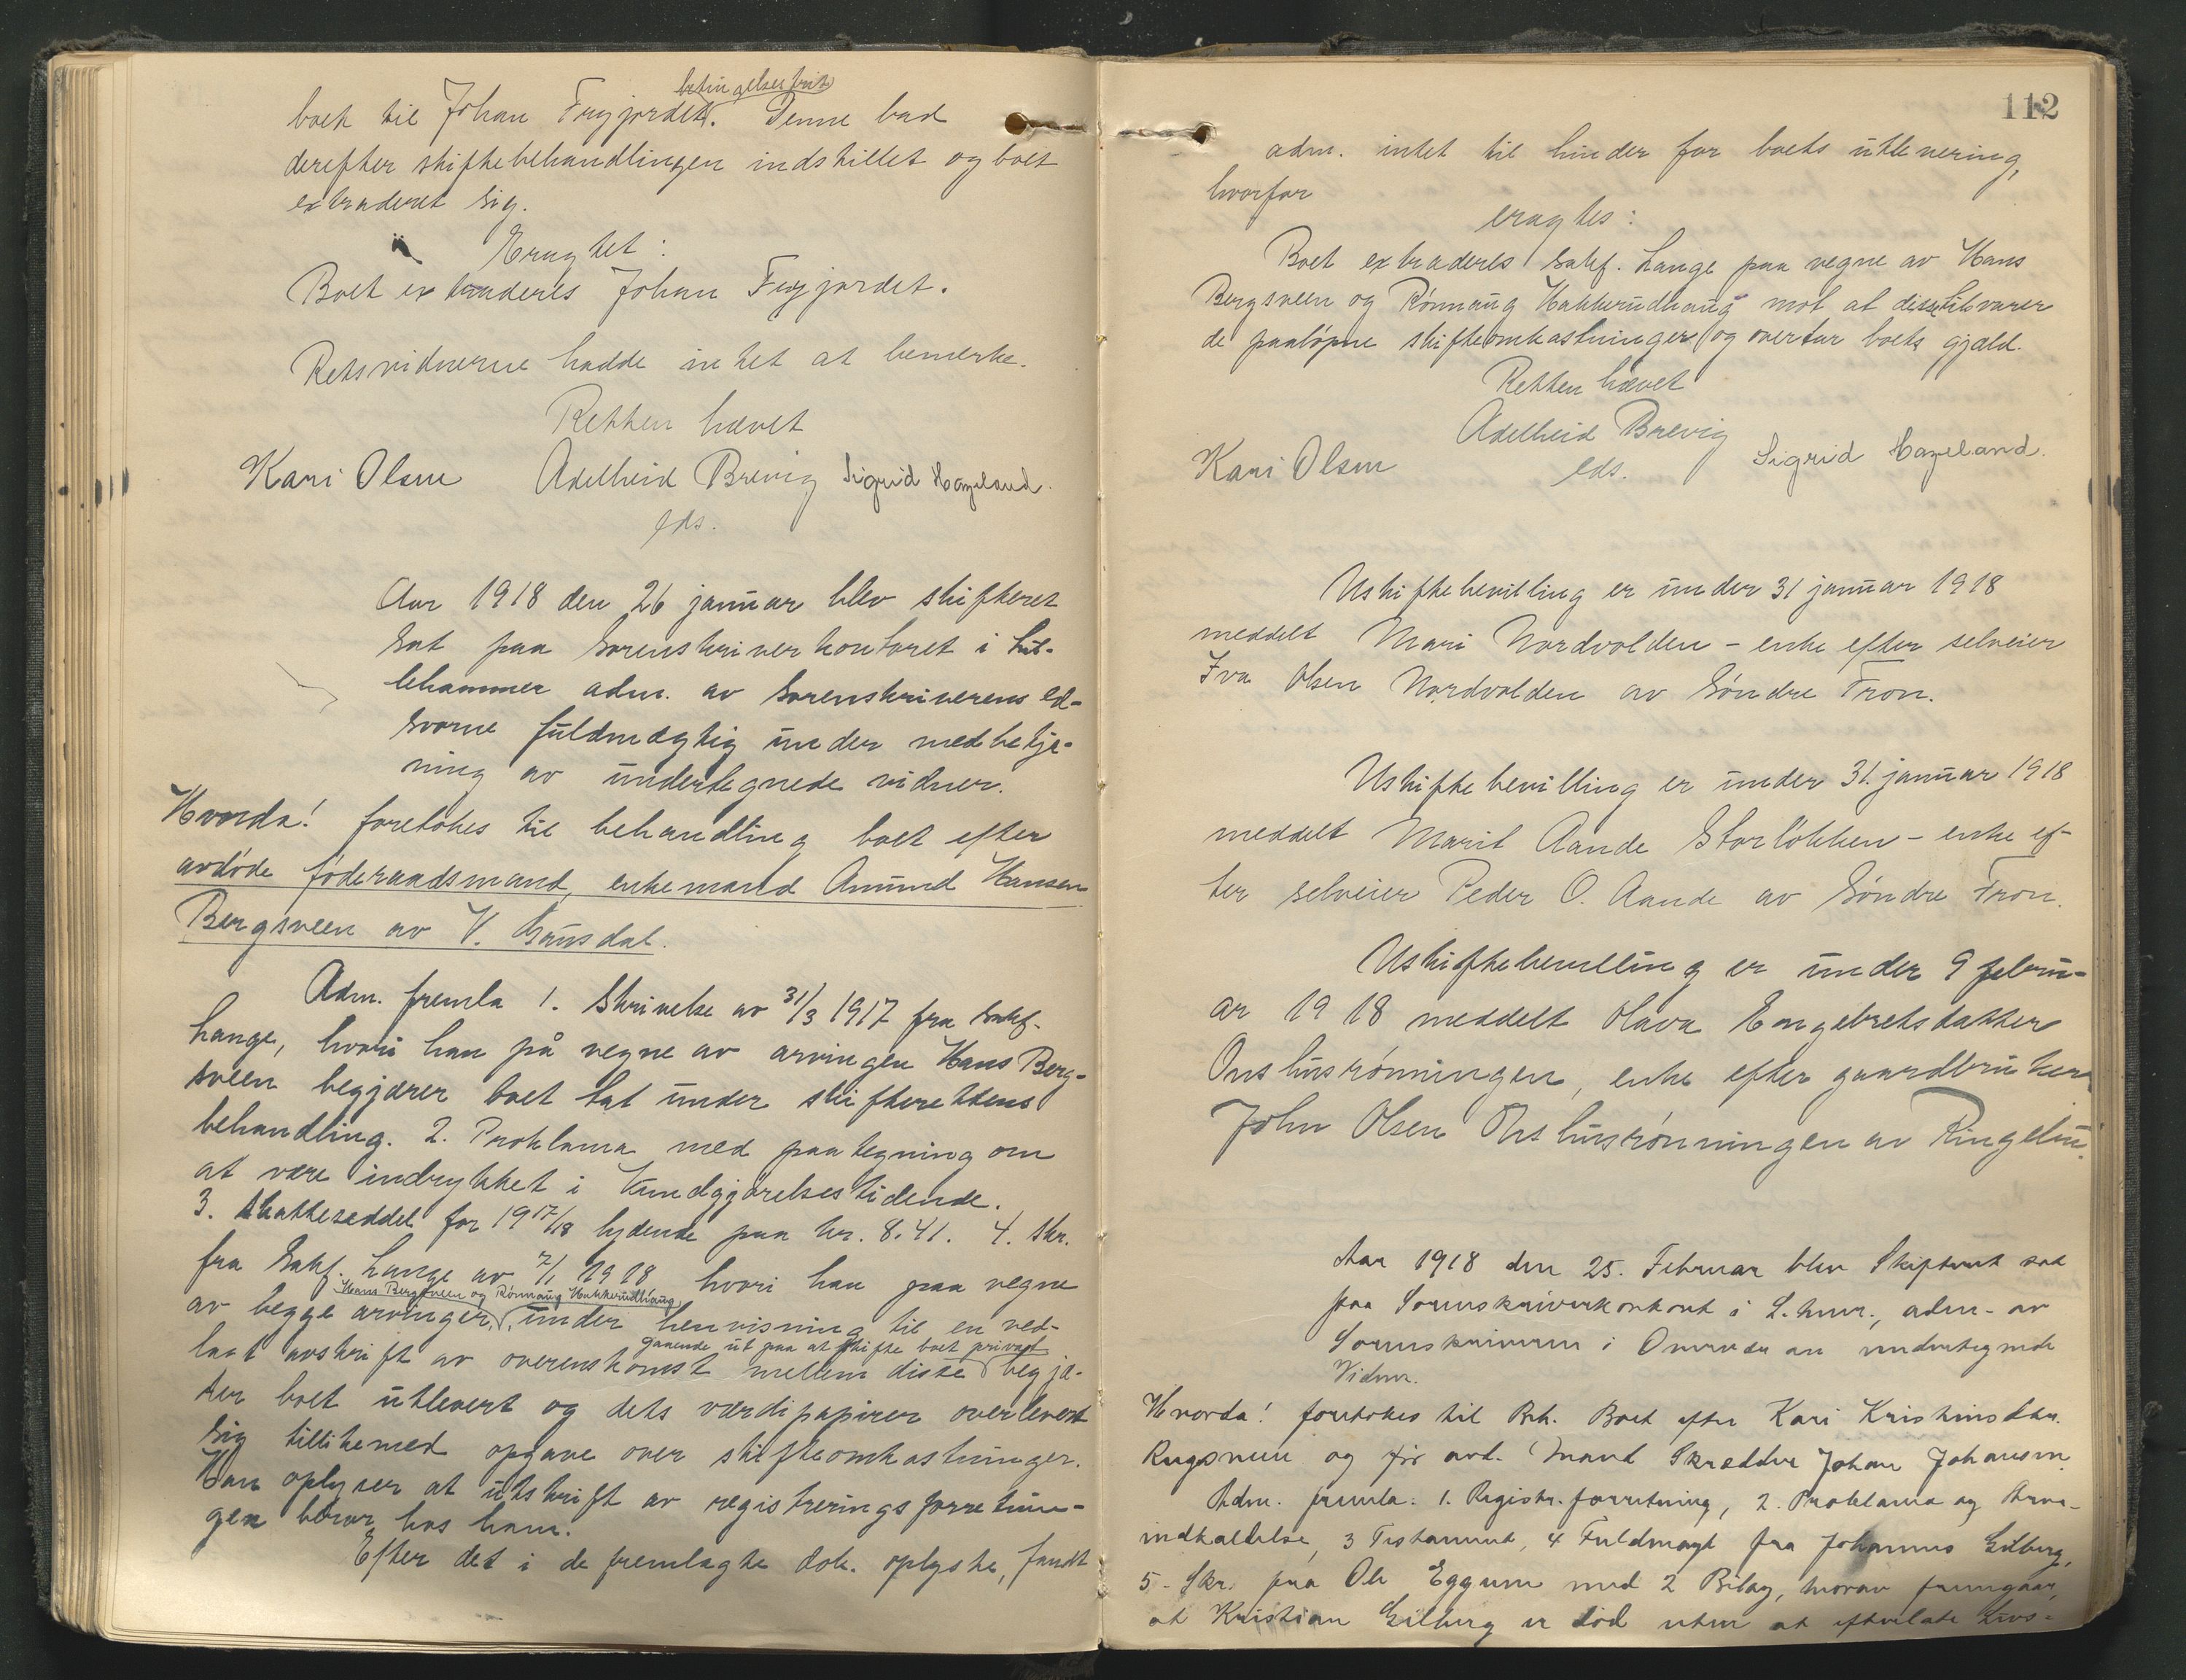 betingelsesfrit
boet til Johan Fryjordet. Denne bad
derefter skiftebehandlingen indstillet og boet
extraderet sig.
Eragtet:
Boet extraderes Johan Frygjordet.
Retsvidnerne hadde intet at bemerke.
Retten hævet
Kari Olsen Adelheid Brevig Sigrid Hageland.
eds.
Aar 1918 den 26 januar blev skifteret
sat paa sorenskriverkontoret i Lil-
lehammer adm. av sorenskriverens ed-
svorne fuldmægtig under medbetje-
ning av undertegnede vidner.
Hvorda! foretokes til behandling boet efter
avdøde føderaadsmand, enkemand Amund Hansen
Bergsveen av V. Gausdal.
Adm. fremla 1. Skrivelse av 31/3 1917 fra sakf.
Lange, hvori han på vegne av arvingen Hans Berg-
sveen begjærer boet tat under skifterettens
behandling. 2. Proklama med paategning om
at være indrykket i Kundgjørelsestidende.
3. Skatteseddel for 1917/18 lydende paa kr. 8.41. 4. Skr.
fra Sakf. Lange av 7/1 1918 hvori han paa vegne
Hans Bergsveen og Rønnaug Hakkerudhaug
av begge arvinger, under henvisning til en ved-
gaaende ut paa at skifte boet privat
lagt avskrift av overenskomst mellem disse begjæ-
rer boet utlevert og dets værdipapirer overlevert
sig tillikemed opgave over skifteomkostninger.
Han oplyser at utskrift av registreringsforretnin-
gen beror hos ham.
Efter det i de fremlagte dok. oplyste, fandt
112
adm. intet til hinder for boets utlevering,
hvorfor
eragtes:
Boet extraderes sakf. Lange paa vegne av Hans
Bergsveen og Rønnaug Hakkerudhaug mot at disse tilsvarer
de paaløpne skifteomkostninger og overtar boets gjæld.
Retten hævet
Kari Olsen Adelheid Brevig Sigrid Hageland.
eds.
Uskiftebevilling er under 31 januar 1918
meddelt Mari Nordvolden - enke efter selveier
Iva Olsen Nordvolden av Søndre Fron.
Uskiftebevilling er under 31. januar 1918
meddelt Marit Aande Storløkken - enke ef-
ter selveier Peder O. Aande av Søndre Fron.
Uskiftebevilling er under 9 febru-
ar 1918 meddelt Olava Engebretsdatter
Onshusrønningen, enke efter gaardbruker
John Olsen Onshusrønningen av Ringebu.
Aar 1918 den 25. Februar blev Skifteret sat
paa Sorenskriverkontoret i L.hmr., adm. av
Sorenskriveren i Overvær av undertegnede
Vidner.
Hvorda! foretokes til Beh. Boet efter Kari Kristinsdtr.
Rugsveen og før avd. Mand Skrædder Johan Johansen.
Adm. fremla: 1. Registr.forretning, 2. Proklama og Arve-
indkaldelse, 3 Testament, 4 Fuldmagt fra Johannes Gilberg,
5. Skr. fra Ole Eggum med 2 Bilag, hvorav fremgaar,
at Kristian Gilberg er død uten at efterlate Livs-